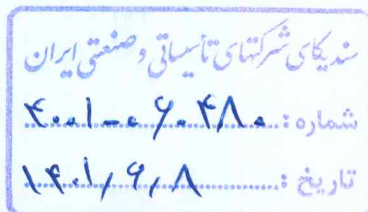 سندیکای شرکتهای تأسیساتی و صنعتی ایران
شماره : ۴۰۰۱-۰۶-۴۸۰
تاریخ : ۱۴۰۱/۶/۸